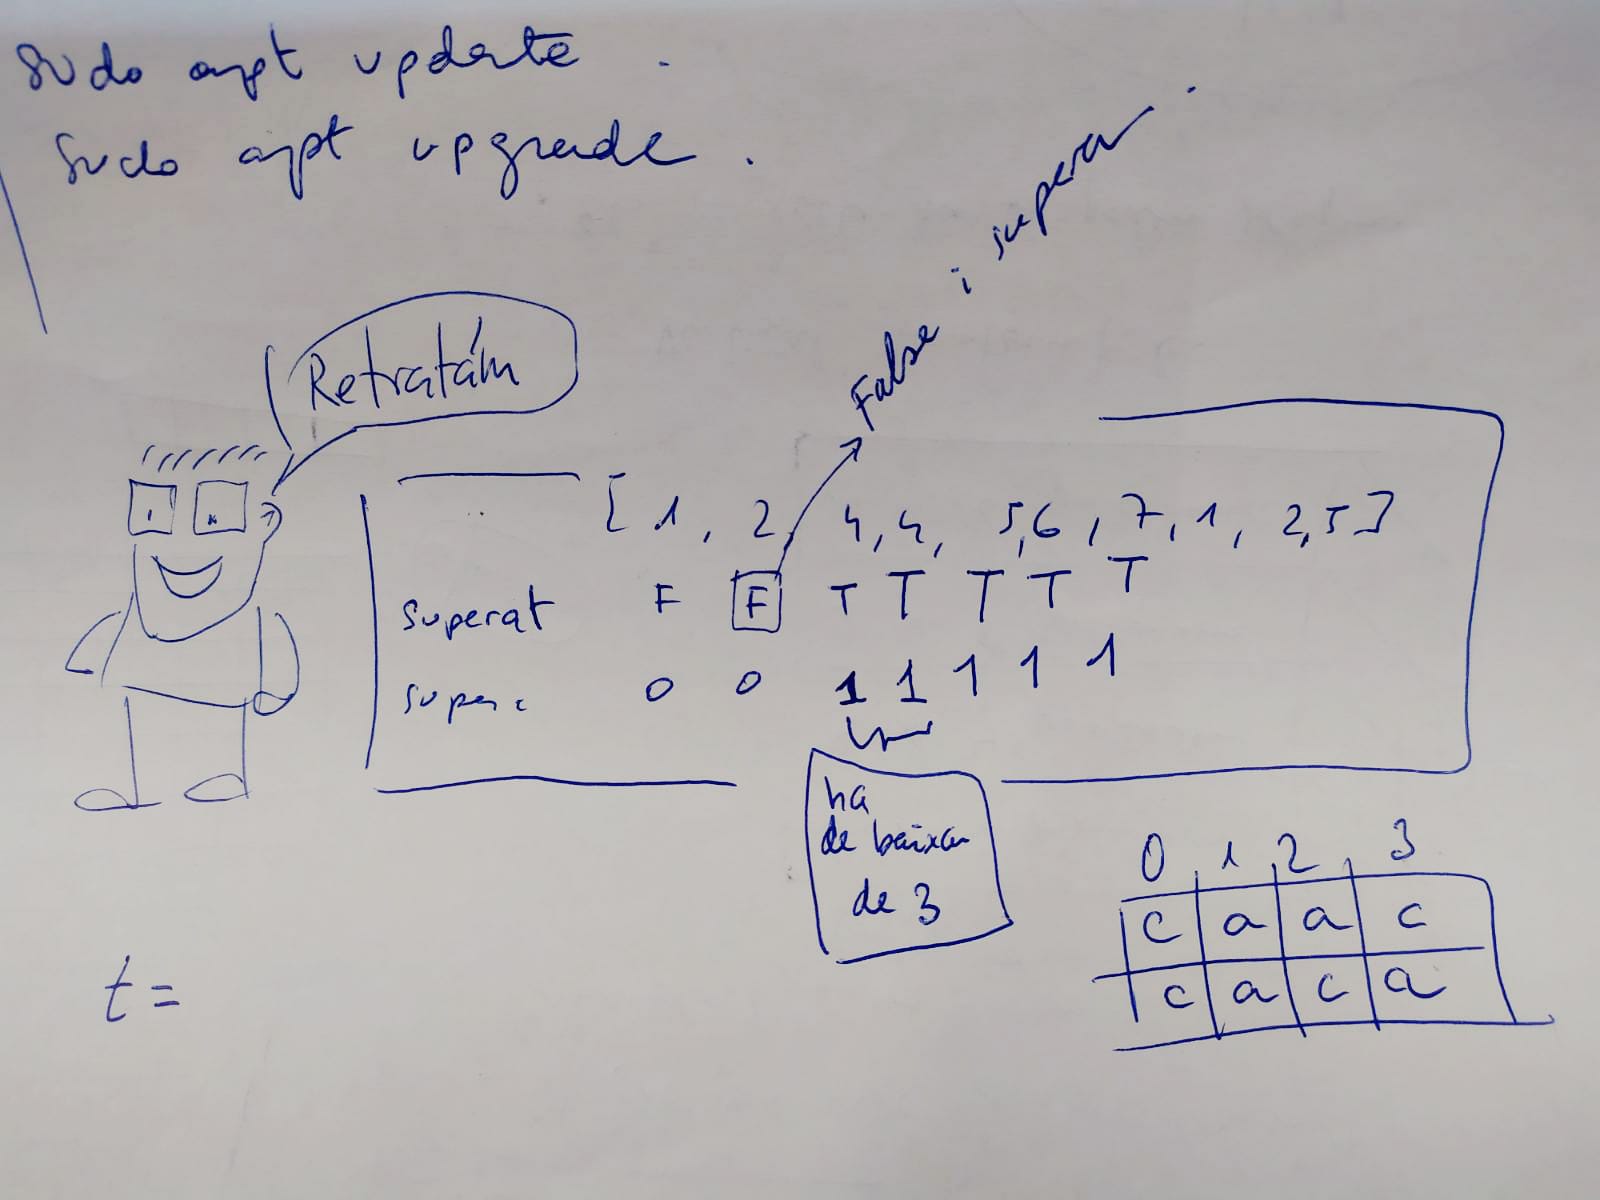 sudo apt update .
sudo apt upgrade .
Retratám
False i supera .
[ 1 , 2, 4, 4, 5,6 , 7, 1 , 2,5 ]
superat F F T T T T T
super: 0 0 1 1 1 1 1
ha
de baixar
de 3
0 , 1 , 2 , 3
c a a c
c a c a
t =